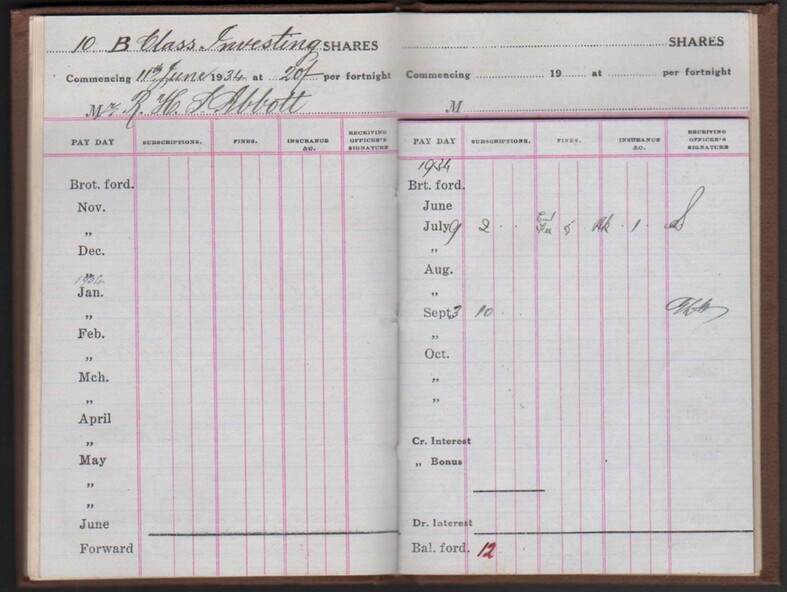 10 B Class Investing SHARES
Commencing 11th June 1934 at 20/ per fortnight
Mr R. H. S Abbott
PAY DAY SUBSCRIPTIONS. FINES. INSURANCE &C. RECEIVING OFFICER'S SIGNATURE
Brot. ford.
Nov.
„
Dec.
„
Jan.
„
Feb.
„
Mch.
„
April
„
May
„
„
June
Forward
SHARES
Commencing 19 at per fortnight
M
PAY DAY SUBSCRIPTIONS. FINES. INSURANCE &C. RECEIVING OFFICER'S SIGNATURE
1934
Brt. ford.
June
July 9 2 Bk 1
„
Aug.
„
Sept. 3 10
„
Oct.
„
„
Cr. Interest
„ Bonus
Dr. Interest
Bal. ford. 12